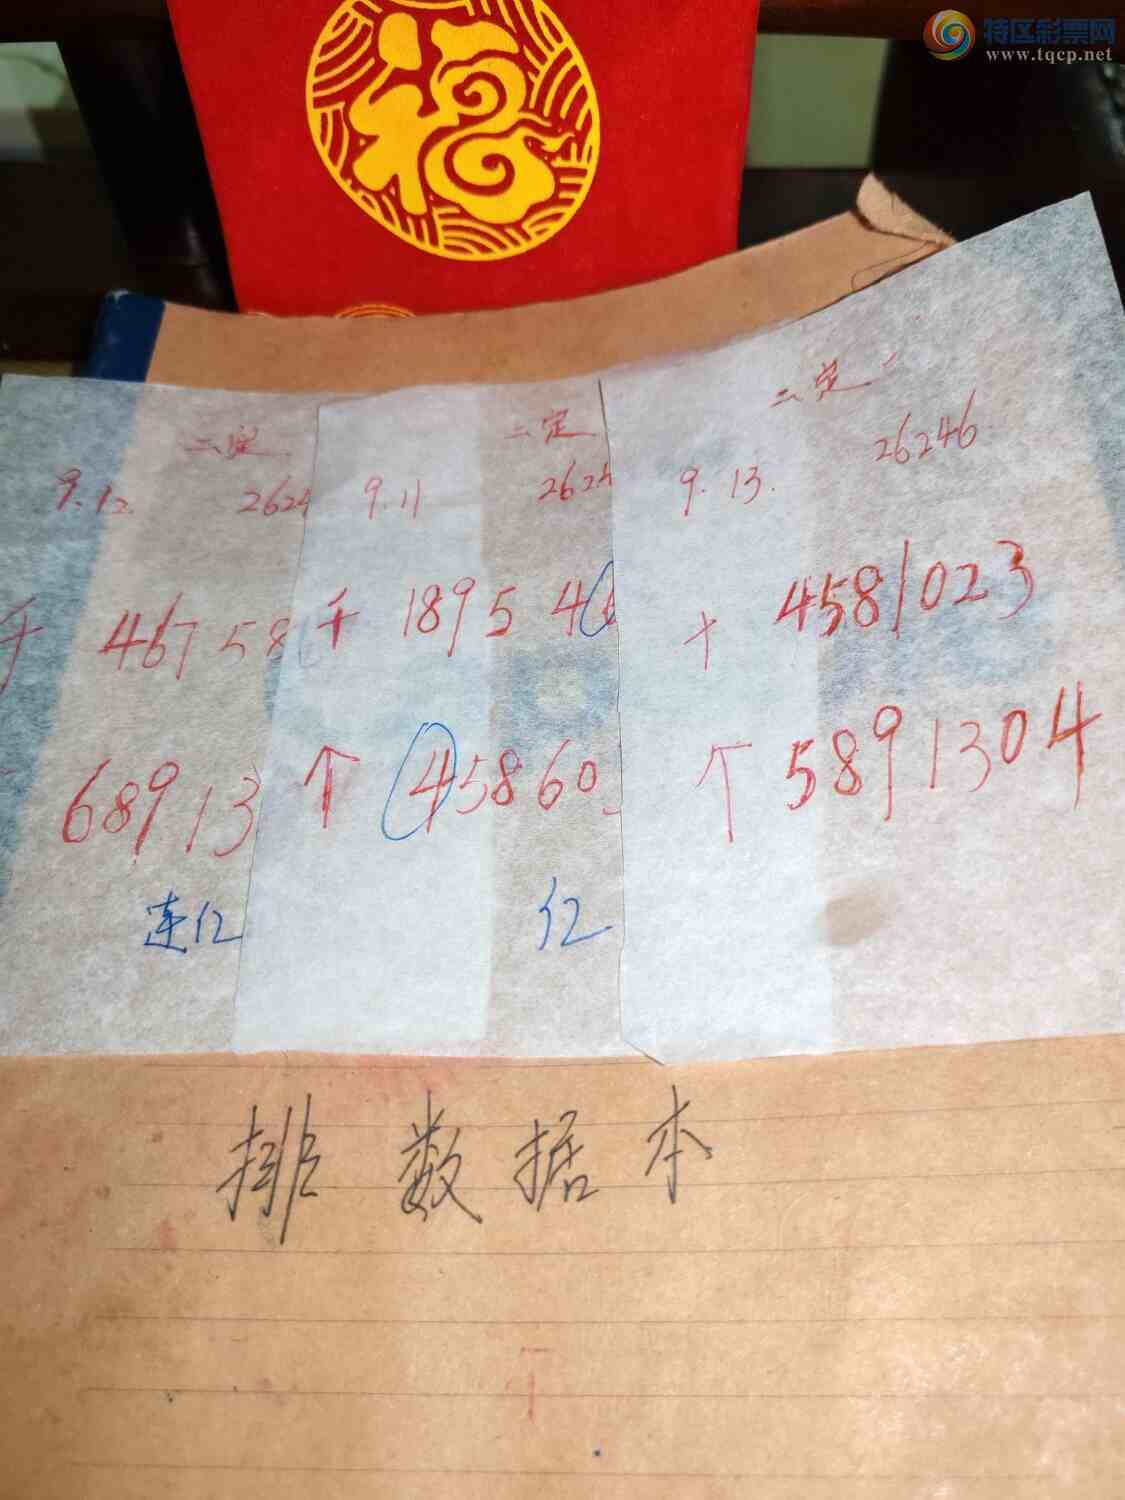 特区彩票网
www.tqcp.net
福
二定
9.12
2624
千 46758
68913
连亿
二定
9.11
2624
千 189546
个 45860
亿
二定
9.13.
26246
十 4581023
个 5891304
排数据本